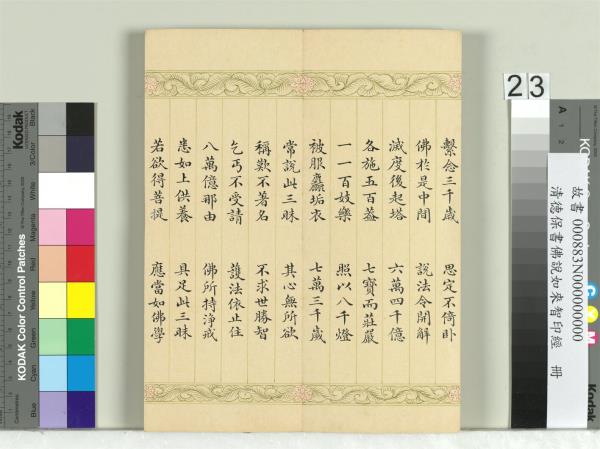 繫念三千歲　思定不倚卧
佛於是中間　說法令開解
滅度後起塔　六萬四千億
各施五百蓋　七寶而莊嚴
一一百妓樂　照以八千燈
被服麤垢衣　七萬三千歲
常說此三昧　其心無所欲
稱歎不著名　不求世勝智
乞丐不受請　護法依止住
八萬億那由　佛所持淨戒
悉如上供養　具足此三昧
若欲得菩提　應當如佛學
23
故書 000883N000000000
清德保書佛說如來智印經　冊
Kodak
KODAK Color Control Patches
Blue
Cyan
Green
Yellow
Red
Magenta
White
3/Color
Black
Kodak
A 1 2
C Y M